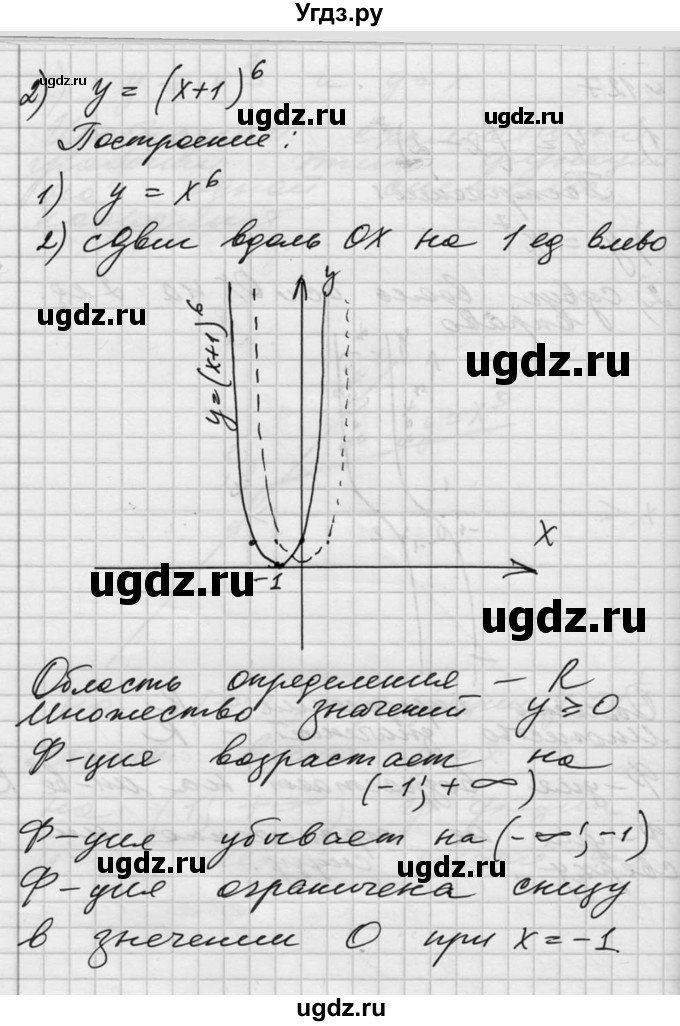 Угдз.ру
ugdz.ru
ugdz.ru
ugdz.ru
2) y = (x+1)^6
Построение:
1) y = x^6
2) сдвиг вдоль OX на 1 ед влево
ugdz.ru
y
y=(x+1)^6
ugdz.ru
X
-1
ugdz.ru
ugdz.ru
Область определения – R
Множество значений y ≥ 0
Ф-ция возрастает на
(-1; +∞)
Ф-ция убывает на (-∞; -1)
ugdz.ru
ugdz.ru
Ф-ция ограничена снизу
в значении 0 при x = -1
ugdz.ru